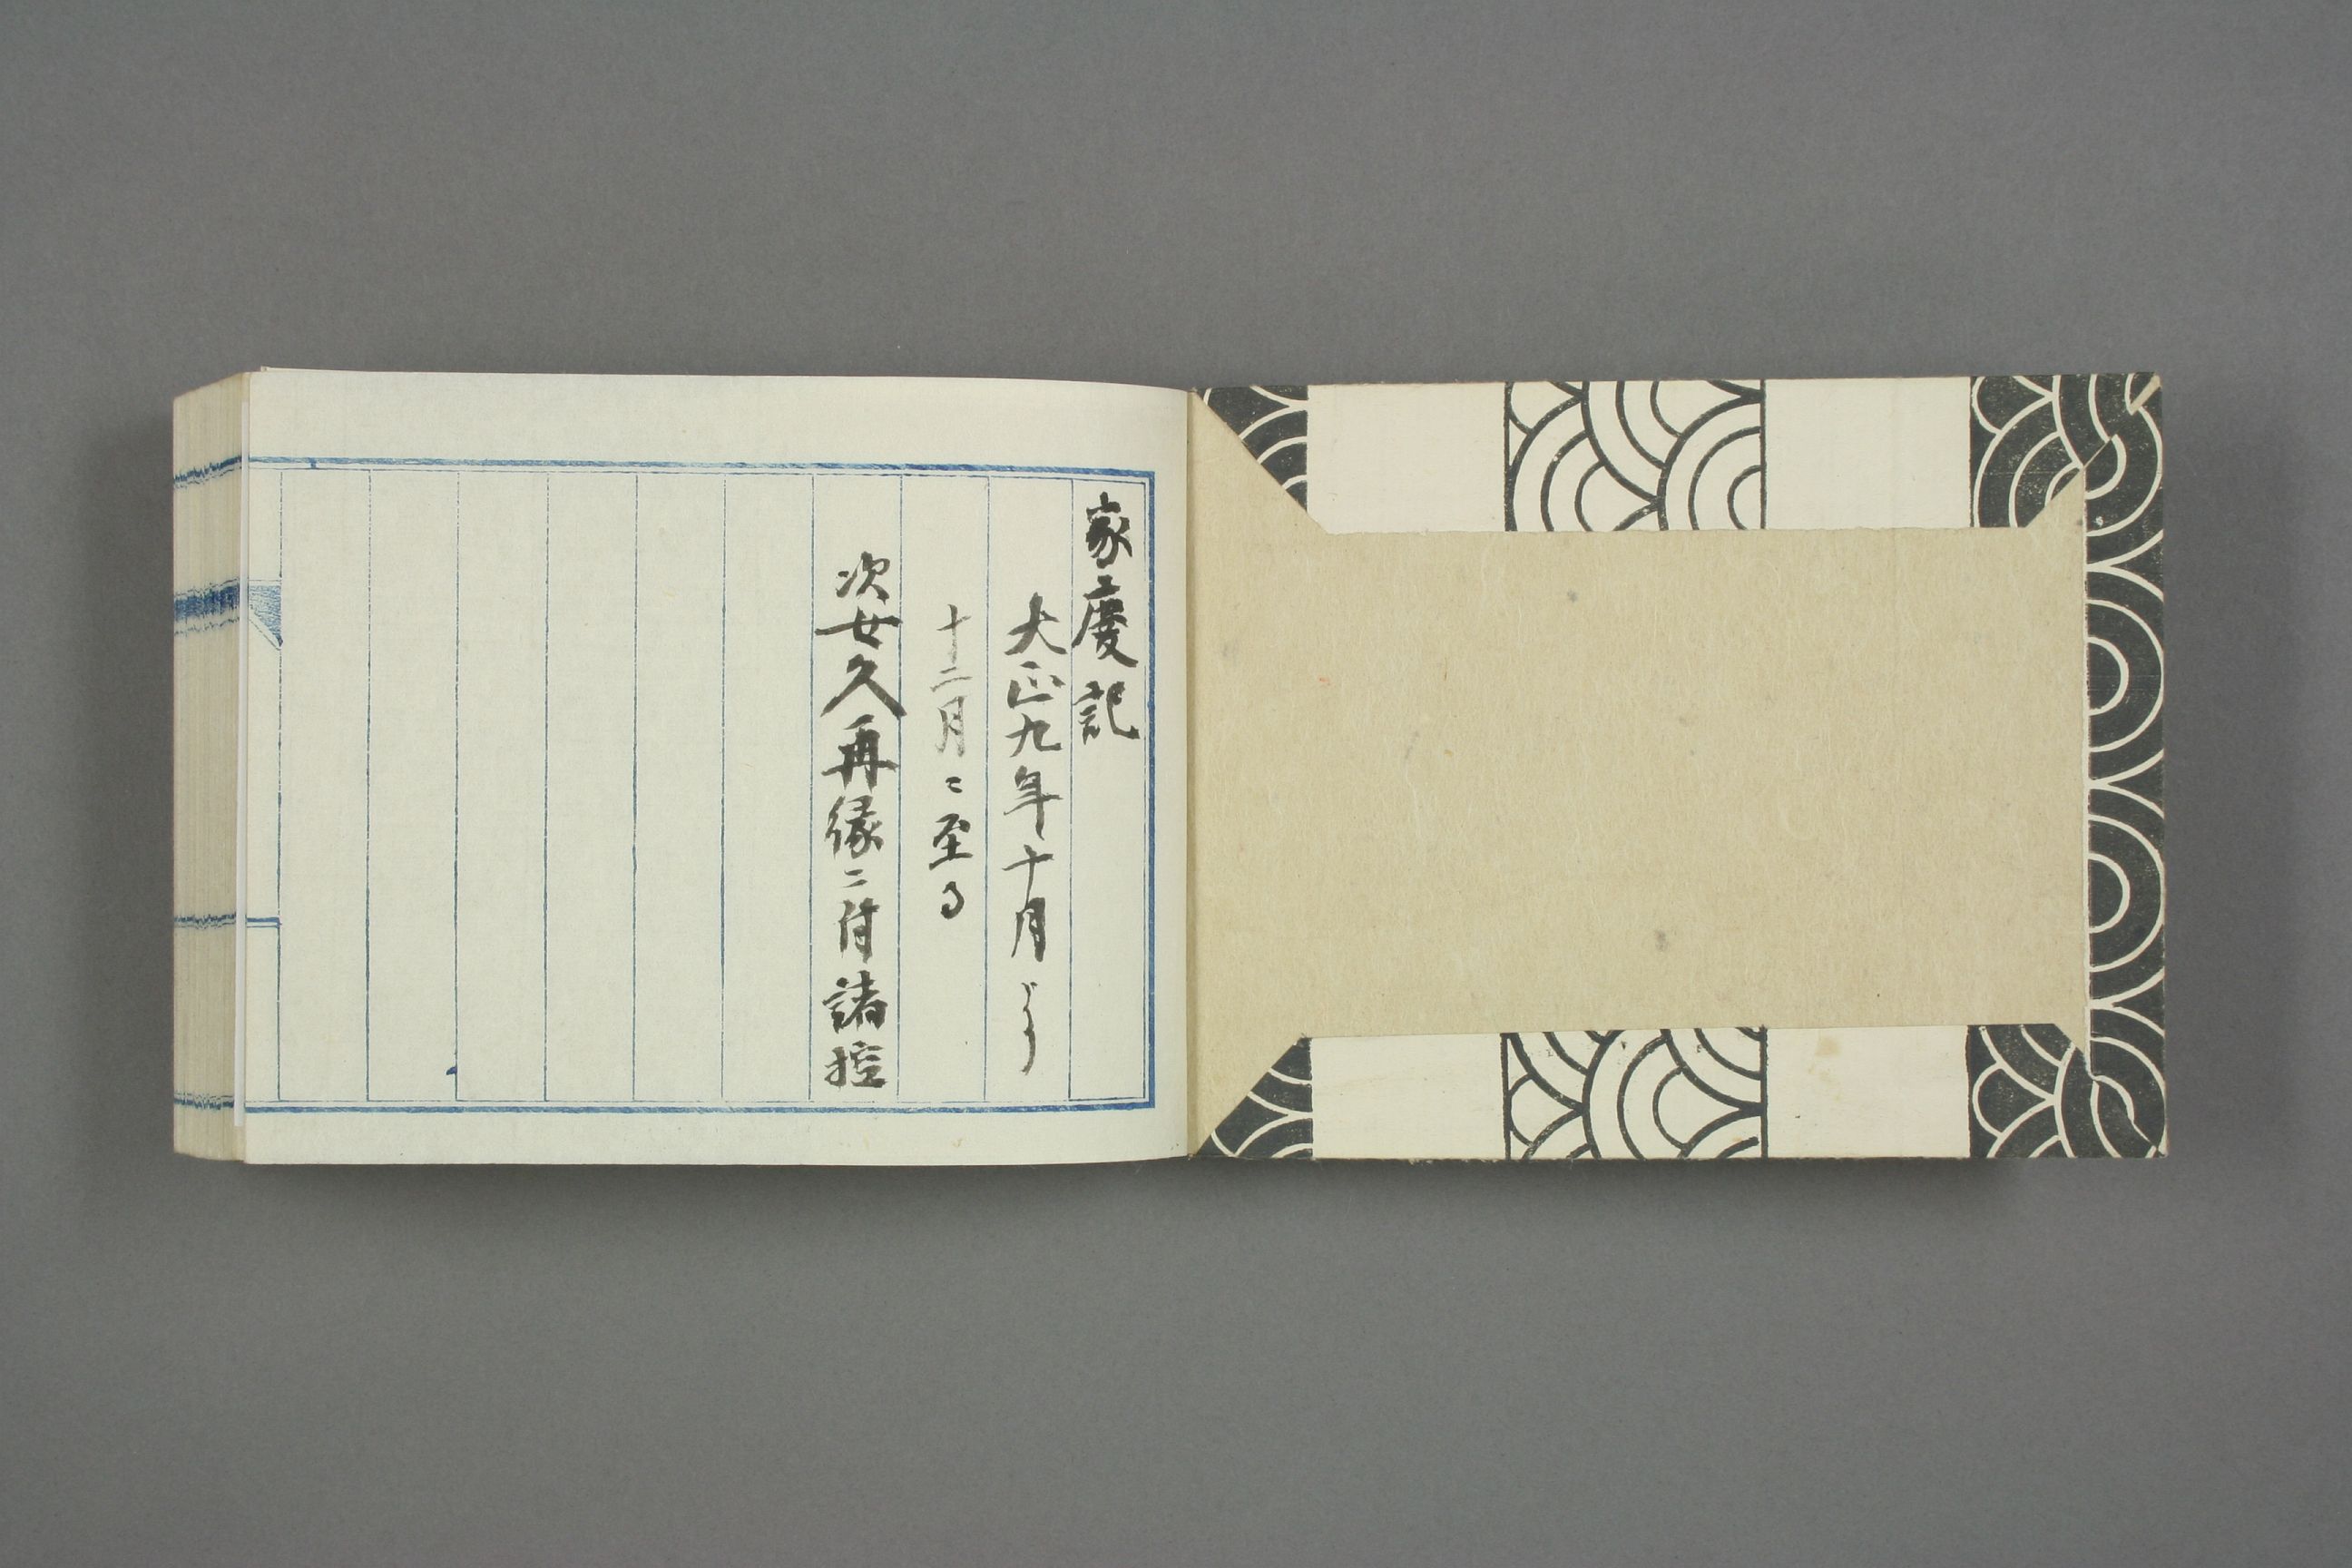 家慶記
大正九年十月より
十二月ニ至る
次女久再縁ニ付諸控